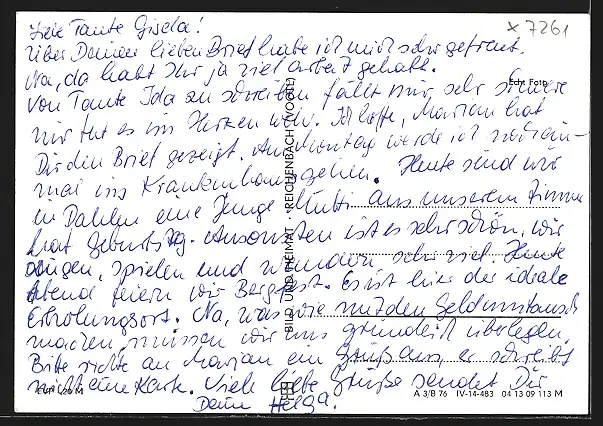 Liebe Tante Gisela!
x 7261
Über Deinen lieben Brief habe ich mich sehr gefreut.
Na, da habt Ihr ja viel Arbeit gehabt.
Echt Foto
Von Tante Ida zu schreiben fällt mir sehr schwer
mir tut es im Herzen weh. Ich hoffe, Marian hat
Dir den Brief gezeigt. Am Montag werde ich
mal ins Krankenhaus gehen. Heute sind wir
in Dahlen eine junge Mutti aus unserem Zimmer
hat Geburtstag. Ansonsten ist es sehr schön, wir
singen, spielen und wandern sehr viel. Heute
Abend feiern wir Bergfest. Es ist hier der ideale
Erholungsort. Na, was wir mit den Geldumtausch
machen, müssen wir uns gründlich überlegen.
Bitte richte an Marian ein Gruß aus, er schreibt
nicht eine Karte. Viele liebe Grüße sendet Dir
Deine Helga.
BILD UND HEIMAT · REICHENBACH (VOGTL)
EVP 0,20 M
A 3/B 76 IV-14-483 04 13 09 113 M